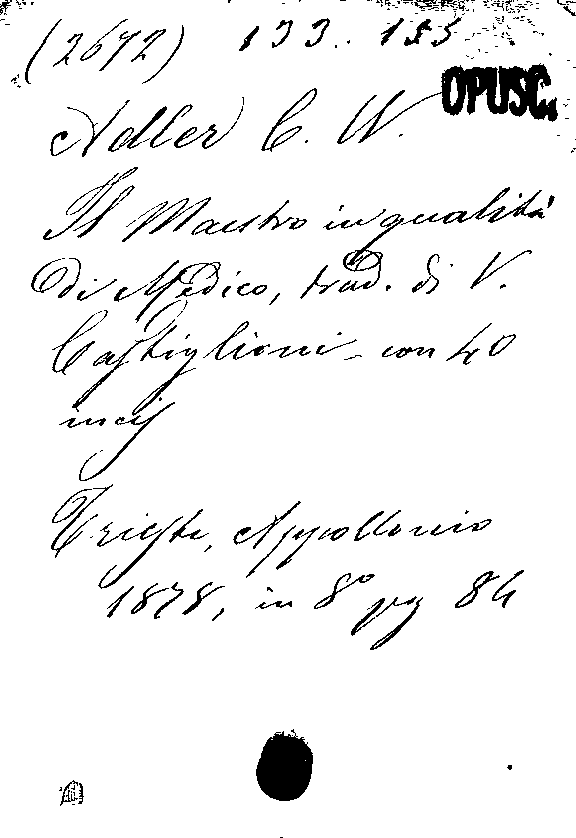 (2672) 133.. 155
OPUSC.
Adler C. W.
Il Maestro in qualità
di Medico, trad. di V.
Castiglioni - con 40
incis
Trieste, Appollonio
1878, in 8° pag 84